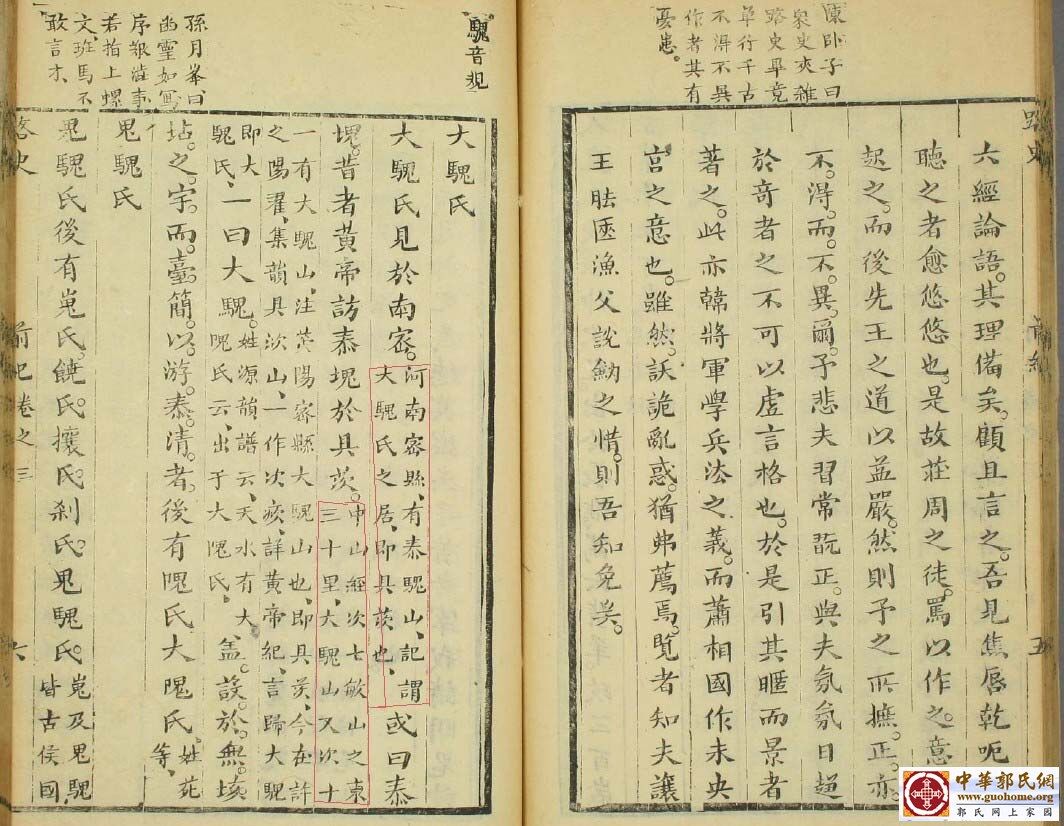 陳卧子曰
衆史夾雜
路史畢竟
單行千古
不得不異
作者其有
憂患。
六經論語。其理備矣。顧且言之。吾見焦唇乾呃
聽之者愈悠悠也。是故莊周之徒。罵以作之。意
起之。而後先王之道以益嚴。然則予之所撫。正。亦
不。得。而。不。異。爾。予悲夫習常翫正。與夫氛氛日趨
於奇者之不可以虛言格也。於是引其暱而景者
著之。此亦韓將軍學兵法之義。而蕭相國作未央
宮之意也。雖然。訞詭亂惑。猶弗薦焉。覽者知夫讓
王胠匧漁父說劒之惜。則吾知免矣。
五
騩音嬰
孫月峯曰
幽靈如寫
序報漟事
若指上螺
文、班馬不
敢言才、
大騩氏
大騩氏見於南密。河南密縣、有泰騩山、記謂
大騩氏之居、即具茨也、或曰泰
塊。昔者黃帝訪泰塊於具茨。中山經次七敏山之東
三十里、大騩山又次十
一有大騩山、注、滎陽密縣大騩山也、即具茨、今在許
之陽翟、集韻具次山、一作次㾊、詳黃帝紀、言歸大騩
即大
騩氏、一曰大騩。姓源韻譜云、天水有大
隗氏云、出于大隗氏、蓋。設。於。無。垓
坫。之。宇。而。臺。簡。以。游。泰。清。者。後有隗氏大隗氏、姓苑
等、
鬼騩氏
鬼騩氏後有嵬氏。饒氏。攘氏。刹氏。鬼騩氏。嵬及鬼騩
皆古侯國
路史
前紀卷之三
六
中華郭氏網
www.guohome.org
郭氏网上家园